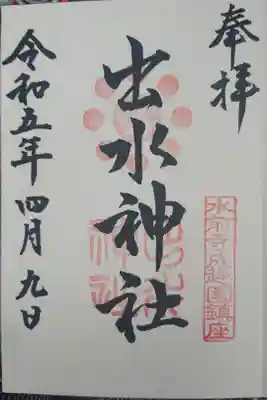 奉拝
水前寺成趣園鎮座
出水神社
出水神社
令和五年四月九日